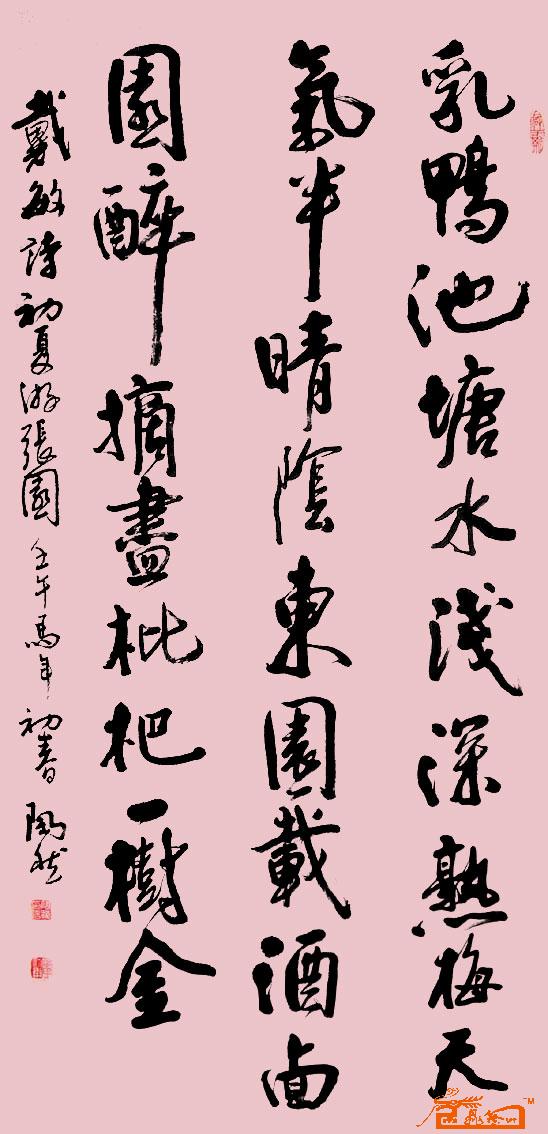 乳鴨池塘水淺深熟梅天
氣半晴陰東園載酒西
園醉摘盡枇杷一樹金
戴敏詩初夏游張園 壬午馬年初春 陶然
TM